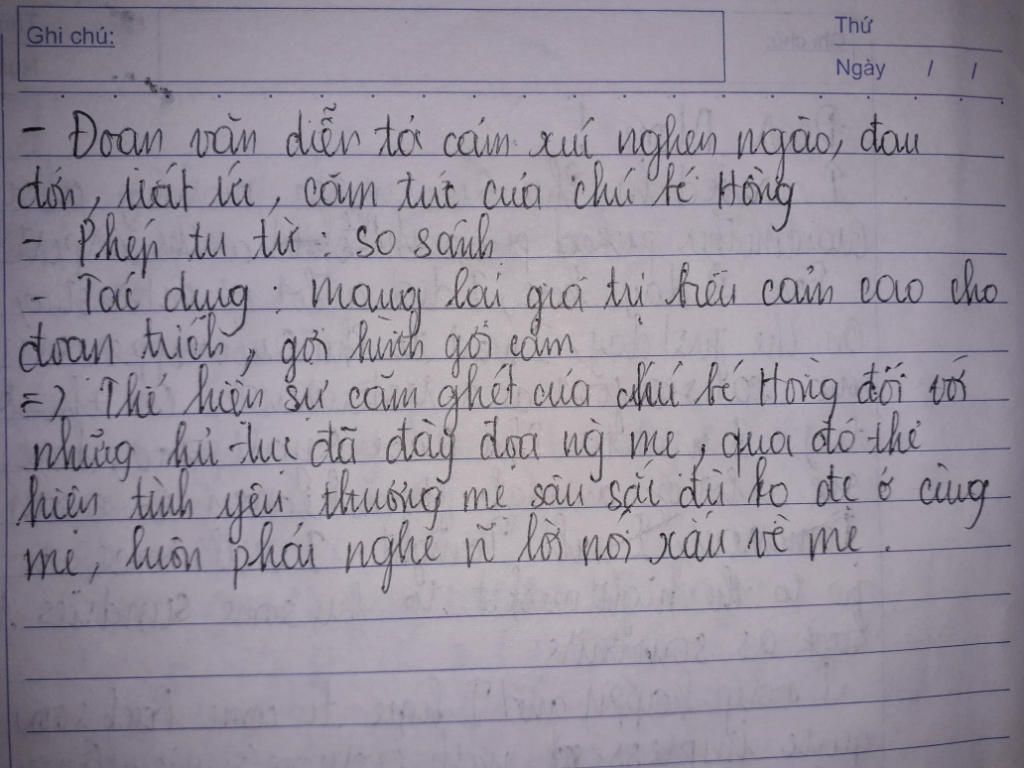 Ghi chú:
Thứ
Ngày / /
- Đoạn văn diễn tả cảm xúc nghẹn ngào, đau
đớn, uất ức, căm tức của chú bé Hồng
- Phép tu từ: so sánh
- Tác dụng: mang lại giá trị biểu cảm cao cho
đoạn trích, gợi hình gợi cảm
=> Thể hiện sự căm ghét của chú bé Hồng đối với
những hủ tục đã đày đọa ng mẹ, qua đó thể
hiện tình yêu thương mẹ sâu sắc dù ko đc ở cùng
mẹ, luôn phải nghe ~ lời nói xấu về mẹ.